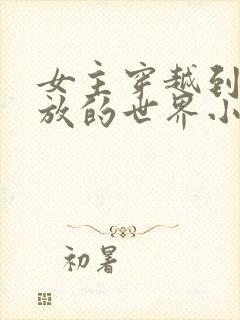 女主穿越到
放的世界小
初暑